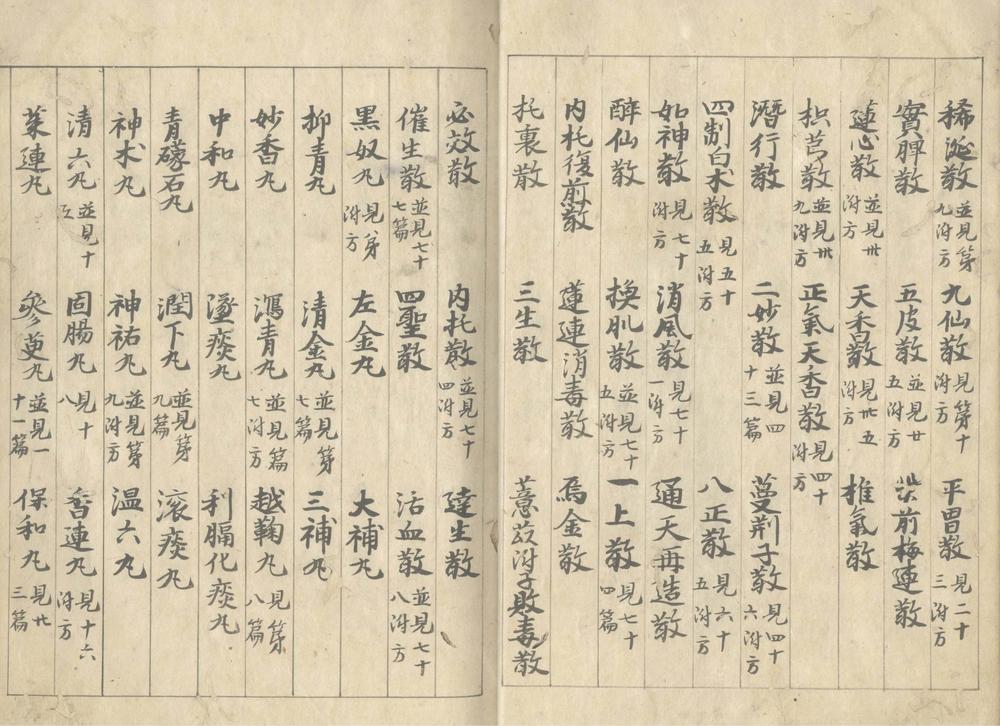 稀涎散 並見第九附方 九仙散 見第十附方 平胃散 見二十三附方
實脾散 五皮散 並見廿五附方 前梅連散
蓮心散 並見卅附方 天香散 見卅五附方 推氣散
枳芎散 並見卅九附方 正氣天香散 見四十附方
潛行散 二妙散 並見四十三篇 蔓荆子散 見四十六附方
四制白术散 見五十五附方 八正散 見六十五附方
如神散 見七十附方 消風散 見七十一附方 通天再造散
醉仙散 換肌散 並見七十五附方 一上散 見七十四篇
内托復煎散 蓮連消毒散 焉金散
托裏散 三生散 薏苡附子敗毒散
必效散 内托散 並見七十四附方 達生散
催生散 並見七十七篇 四聖散 活血散 並見七十八附方
黑奴丸 見第附方 左金丸 大補丸
抑青丸 清金丸 並見第七篇 三補丸
妙香丸 瀉青丸 並見篇七附方 越鞠丸 見第八篇
中和丸 遂痰丸 利膈化痰丸
青礞石丸 潤下丸 並見第九篇 滚痰丸
神术丸 神祐丸 並見第九附方 温六丸
清六丸 並見十 固腸丸 見十八 香連丸 見十六附方
茱連丸 參萸丸 並見一十一篇 保和丸 見廿三篇